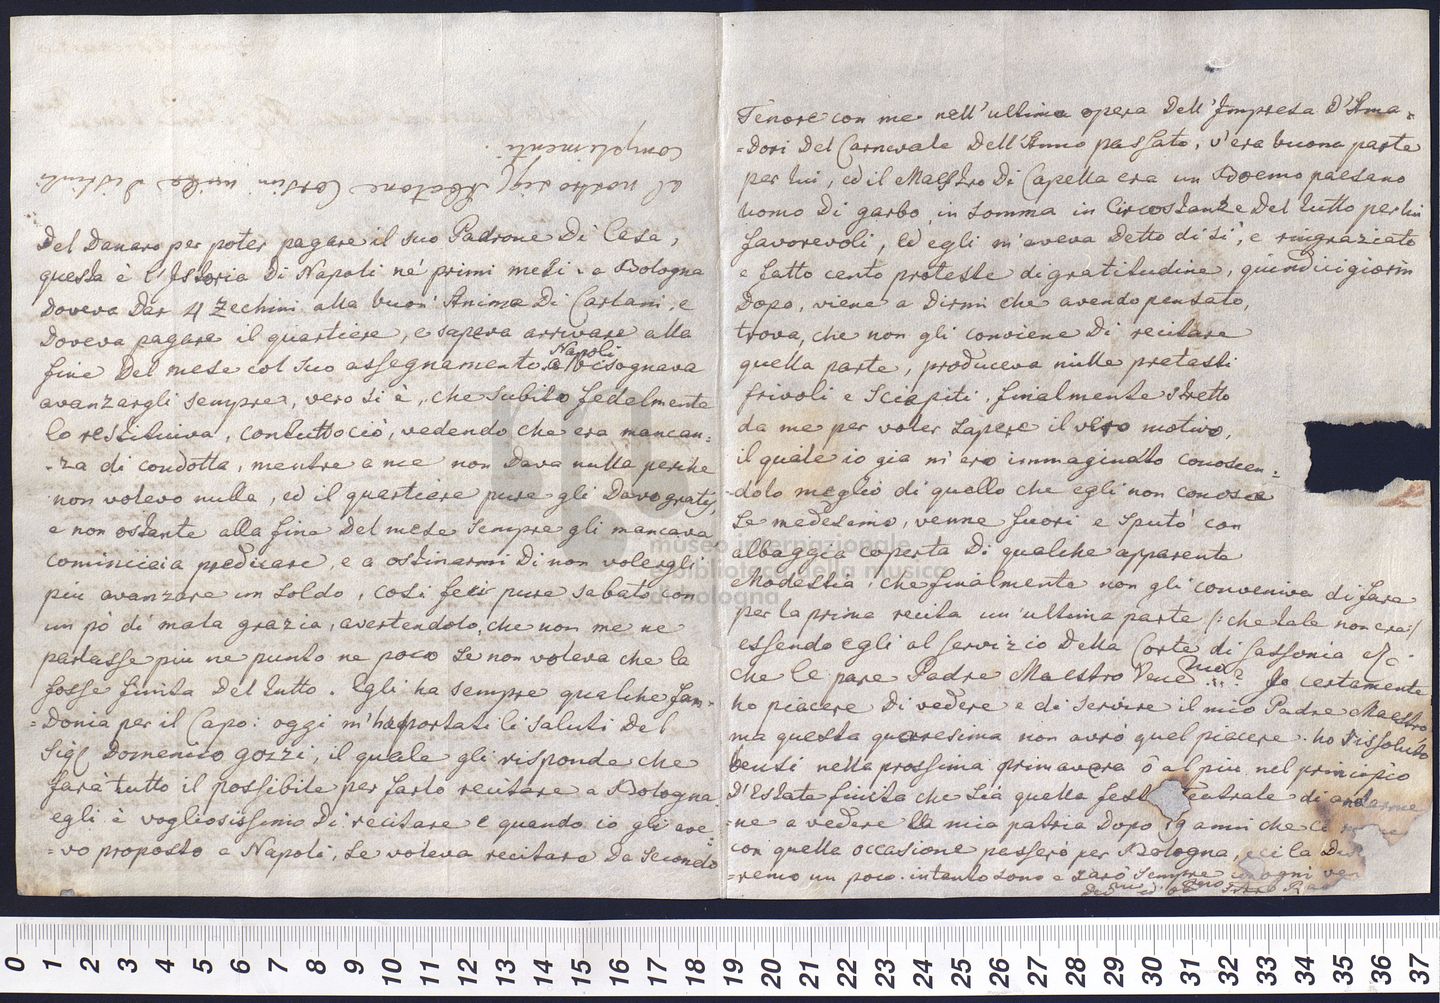 complimenti.
al nostro Sig.r Abatone Corsini mille distinti
del danaro per poter pagare il suo Padrone di Casa,
questa è l'Istoria di Napoli ne' primi mesi. a Bologna
doveva dar 4 Zechini alla buon' Anima di Carlani, e
doveva pagare il quartiere, e sapeva arrivare alla
fine del mese col suo assegnamento. a Napoli bisognava
avanzargli sempre, vero si è, che subito fedelmente
lo restituiva, contuttociò, vedendo che era mancan-
-za di condotta, mentre a me non dava nulla perche
non volevo nulla, ed il quartiere pure gli davo gratis,
e non ostante alla fine del mese sempre gli mancava
cominciai a predicare, e a ostinarmi di non volergli
piu avanzare un soldo, così feci pure sabato con
un pò di mala grazia, avertendolo, che non me ne
parlasse piu ne punto ne poco se non voleva che la
fosse finita del tutto. Egli ha sempre qualche fan-
-donia per il Capo: oggi m'ha portati li saluti del
Sig.r Domenico Gozzi, il quale gli risponde che
farà tutto il possibile per farlo recitare a Bologna.
egli è vogliosissimo di recitare e quando io gli ave-
-vo proposto a Napoli, se voleva recitare da secondo
Tenore con me nell'ultima opera dell'Impresa d'Ama-
-dori del Carnevale dell'Anno passato, v'era buona parte
per lui, ed il Maestro di Capella era un Boemo paesano
uomo di garbo, in somma in Circostanze del tutto per lui
favorevoli, ed egli m'aveva detto di si, e ringraziato
e fatto cento proteste di gratitudine, quindici giorni
dopo, viene a dirmi che avendo pensato,
trova, che non gli conviene di recitare
quella parte, produceva mille pretesti
frivoli e sciapiti, finalmente stretto
da me per voler sapere il vero motivo,
il quale io gia m'ero immaginato conoscen-
-dolo meglio di quello che egli non conosce
se medesimo, venne fuori e sputò con
albaggia coperta di qualche apparente
Modestia, che finalmente non gli conveniva di fare
per la prima recita un'ultima parte /: che tale non era :/
essendo egli al servizio della Corte di Sassonia etc.
che le pare Padre Maestro Ven.mo..? Io certamente
ho piacere di vedere e di servire il mio Padre Maestro
ma questa quaresima non avrò quel piacere. ho risoluto
bensi nella prossima primavera ò al piu nel principio
d'Estate finita che sia quella festa teatrale di andarme-
-ne a vedere la mia patria dopo 19 anni che
con quella occasione passerò per Bologna, e ci
-remo un poco. intanto sono e sarò sempre in ogni